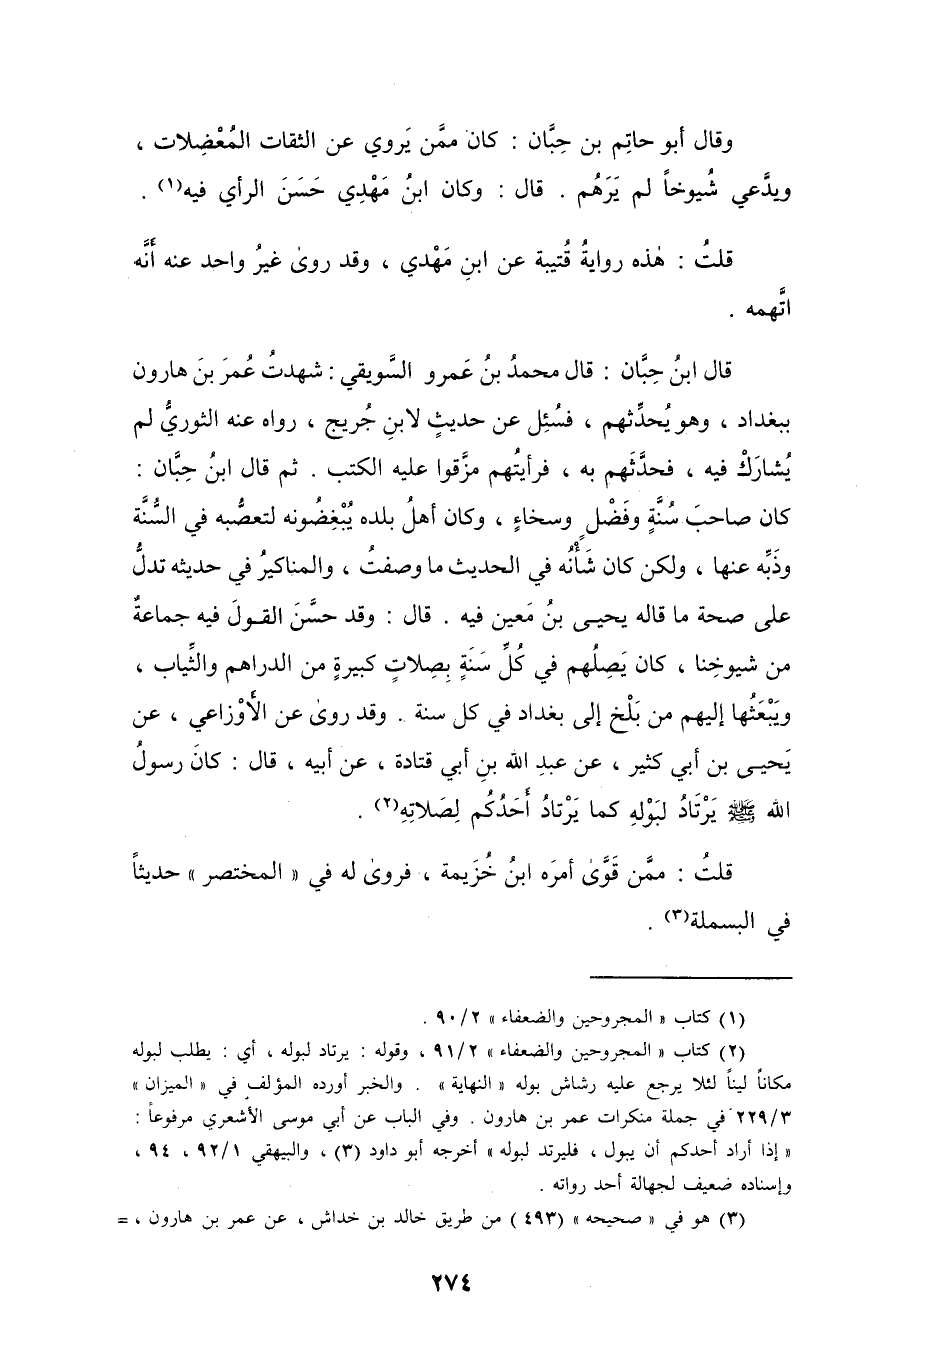 وقال أبو حاتِم بن حِبَّان : كان ممَّن يَروي عن الثقات المُعْضِلات ،
ويدَّعي شُيوخاً لم يَرَهُم . قال : وكان ابنُ مَهْدِي حَسَنَ الرأي فيه(١) .
قلتُ : هٰذه روايةُ قُتيبة عن ابنِ مَهْدي ، وقد روىٰ غيرُ واحد عنه أنَّه
اتَّهمه .
قال ابنُ حِبَّان : قال محمدُ بنُ عَمرو السَّويقي : شهدتُ عُمرَ بنَ هارون
ببغداد ، وهو يُحدِّثهم ، فسُئِل عن حديثٍ لابنِ جُريج ، رواه عنه الثوريُّ لم
يُشارَكْ فيه ، فحدَّثَهم به ، فرأيتُهم مزَّقوا عليه الكتب . ثم قال ابنُ حِبَّان :
كان صاحبَ سُنَّةٍ وفَضْلٍ وسخاءٍ ، وكان أهلُ بلده يُبْغِضُونه لتعصُّبه في السُّنَّة
وذَبِّه عنها ، ولكن كان شَأْنُه في الحديث ما وصفتُ ، والمناكيرُ في حديثه تدلُّ
على صحة ما قاله يحيـى بنُ مَعين فيه . قال : وقد حسَّنَ القـولَ فيه جماعةٌ
من شيوخِنا ، كان يَصِلُهم في كُلِّ سَنَةٍ بِصِلاتٍ كبيرةٍ من الدراهم والثِّياب ،
ويَبْعَثُها إليهم من بَلْخ إلى بغداد في كل سنة . وقد روىٰ عن الأَوْزاعي ، عن
يَحيـى بن أبي كثير ، عن عبدِ الله بنِ أبي قتادة ، عن أبيه ، قال : كانَ رسولُ
الله ﷺ يَرْتَادُ لبَوْلهِ كما يَرْتادُ أَحَدُكُم لِصَلاتِهِ(٢) .
قلتُ : ممَّن قَوَّىٰ أمرَه ابنُ خُزَيمة ، فروىٰ له في « المختصر » حديثاً
في البسملة(٣) .
(١) كتاب « المجروحين والضعفاء » ٩٠/٢ .
(٢) كتاب « المجروحين والضعفاء » ٩١/٢ ، وقوله : يرتاد لبوله ، أي : يطلب لبوله
مكاناً ليناً لئلا يرجع عليه رشاش بوله « النهاية » . والخبر أورده المؤلف في « الميزان »
٢٢٩/٣ في جملة منكرات عمر بن هارون . وفي الباب عن أبي موسى الأشعري مرفوعاً :
« إذا أراد أحدكم أن يبول ، فليرتد لبوله » أخرجه أبو داود (٣) ، والبيهقي ٩٢/١ ، ٩٤ ،
وإسناده ضعيف لجهالة أحد رواته .
(٣) هو في « صحيحه » (٤٩٣) من طريق خالد بن خداش ، عن عمر بن هارون ، =
٢٧٤